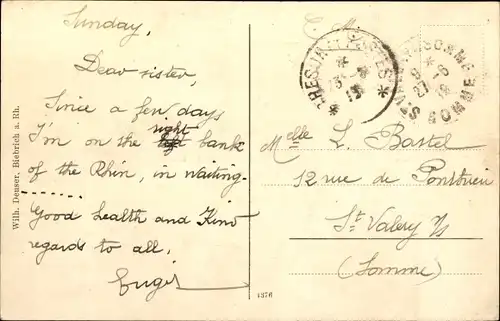 Sunday,
Dear sister,
Since a few days
I'm on the right bank
of the Rhin, in waiting.
Good health and Kind
regards to all.
C. M.
TRESOR ET POSTES
SOMME
21-6
Melle L. Bastel
12 rue de Ponthieu
St Valery s/s
(Somme)
Wilh. Deuser, Biebrich a. Rh.
1376